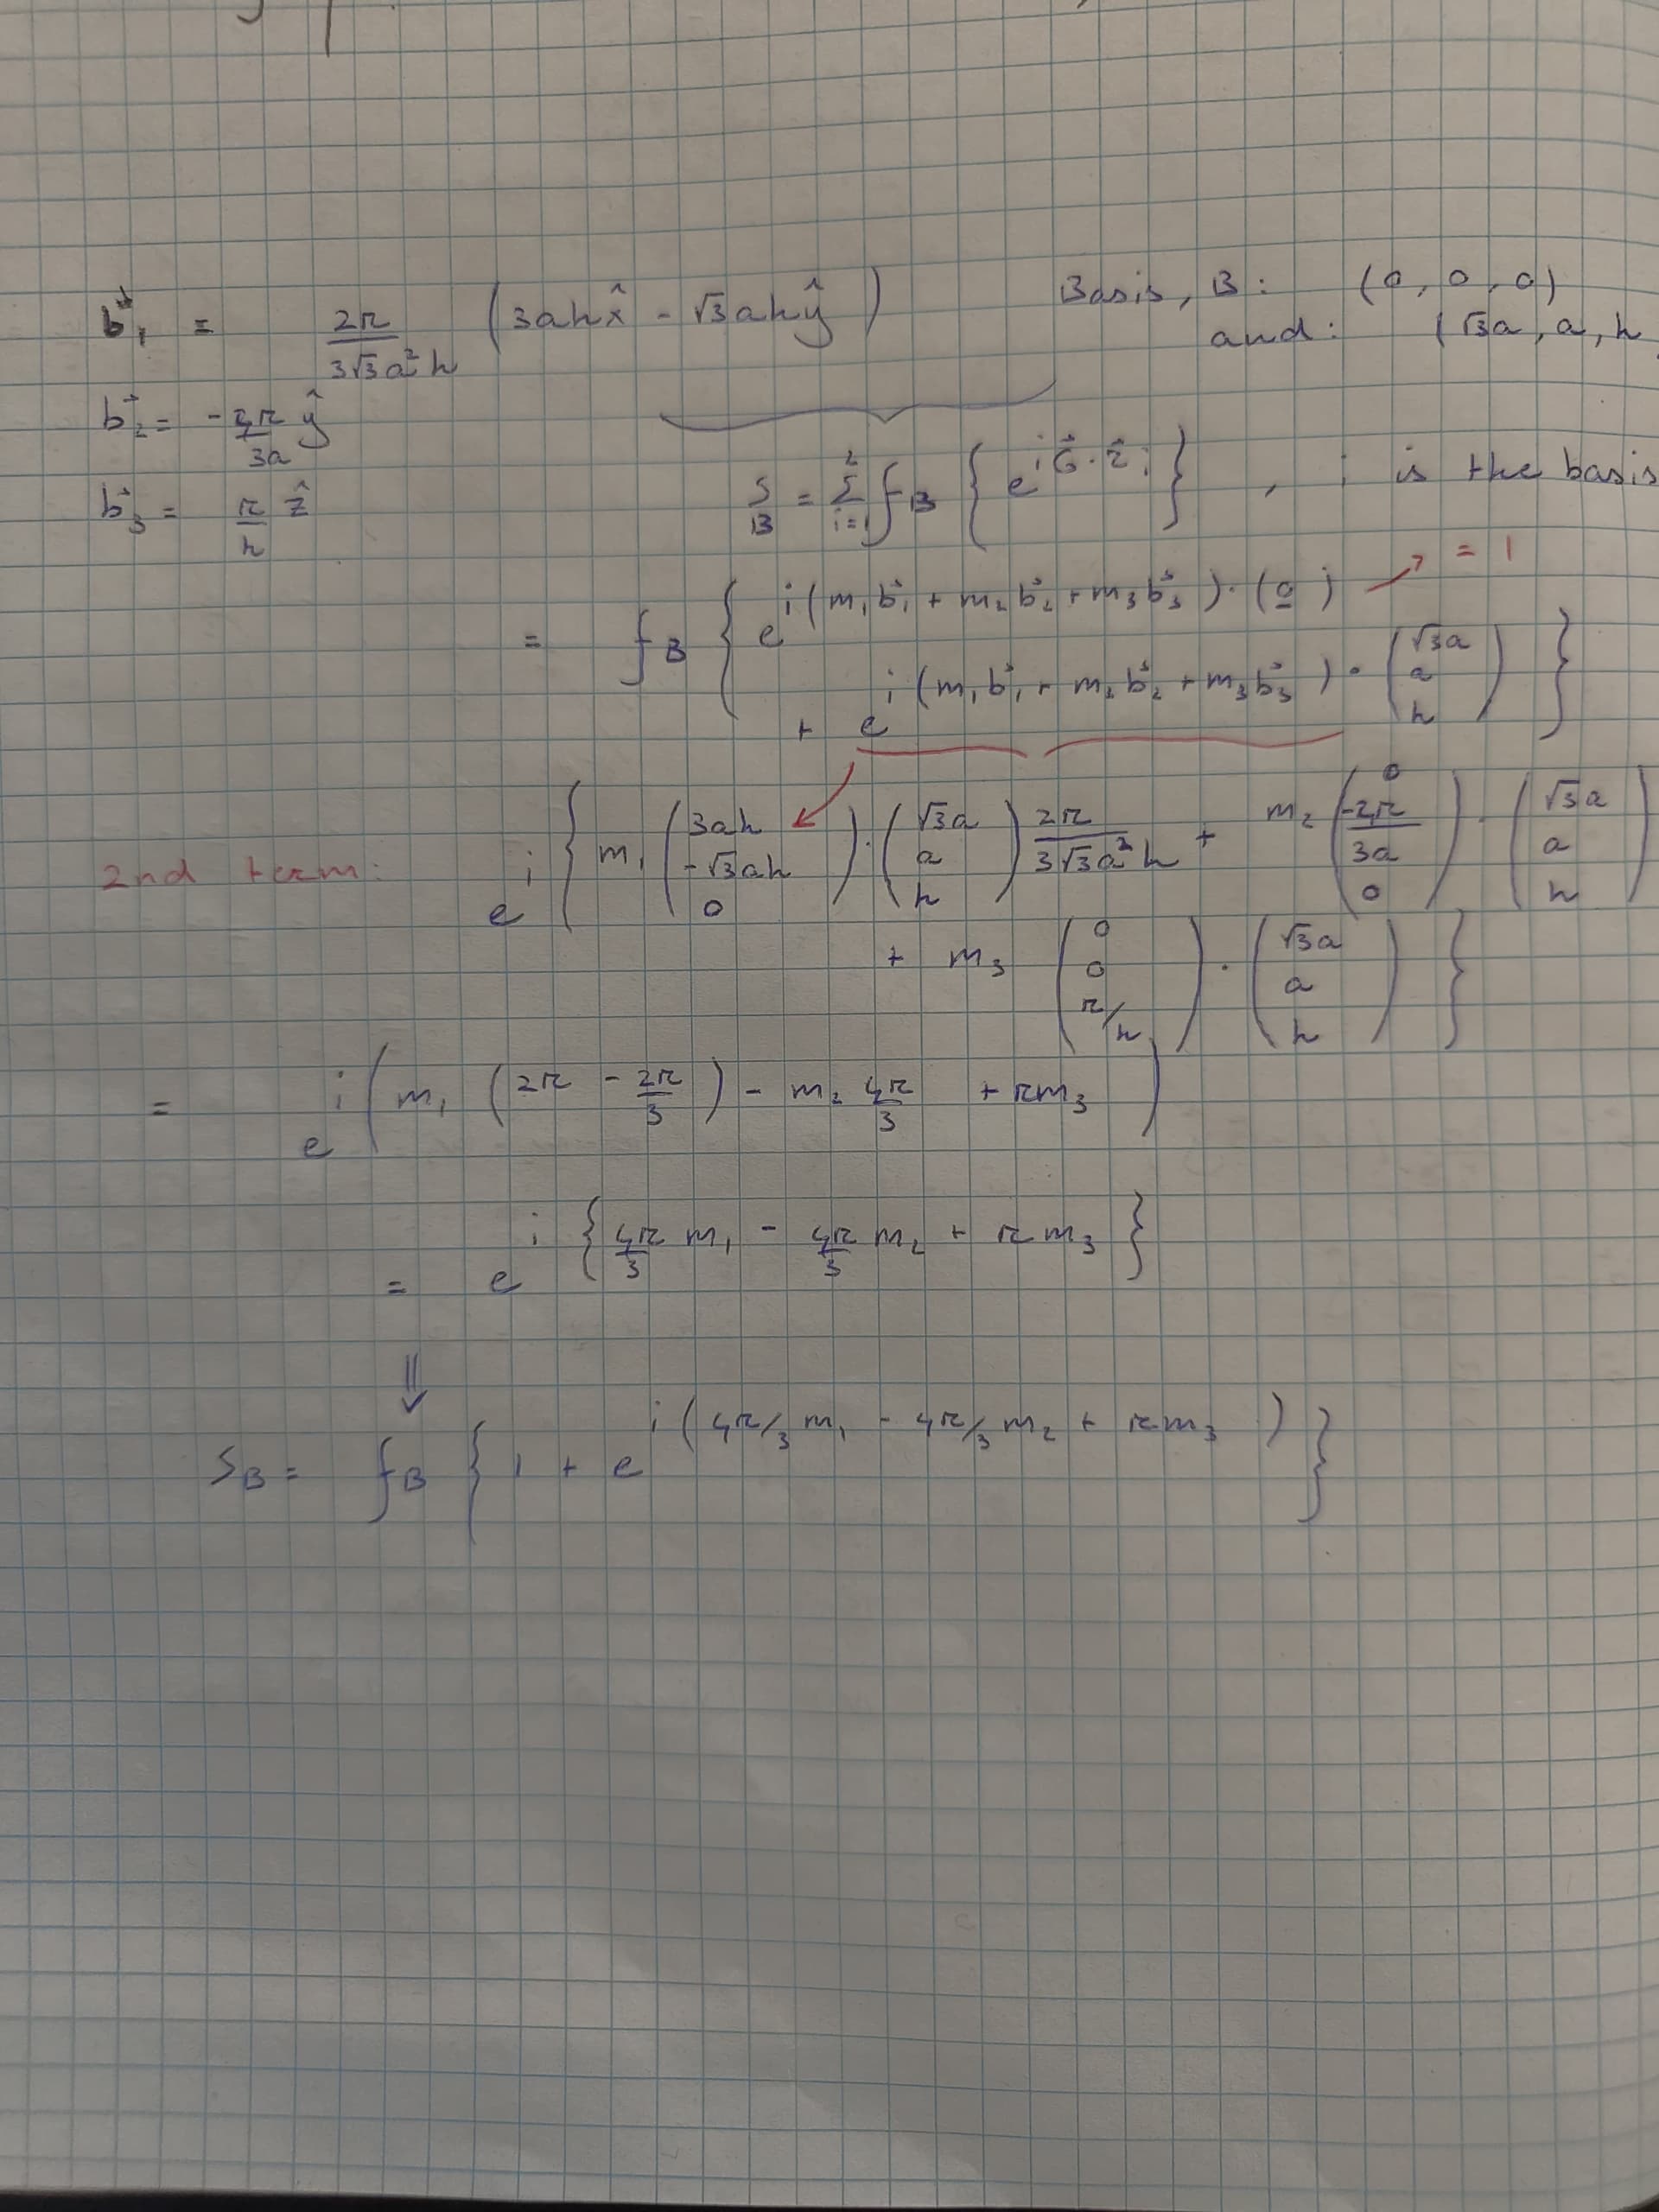 b⃗₁ = 2π/(3√3a²h) (3ahx̂ - √3ahŷ)
Basis, B: (0, 0, 0)
and: (√3a, a, h
b⃗₂ = -4π/3a ŷ
b⃗₃ = π/h ẑ
S_B = Σ_{i=1}^{2} f_B { e^{i G⃗·r⃗_i} } , i is the basis
= f_B { e^{i(m₁b⃗₁ + m₂b⃗₂ + m₃b⃗₃)·(0)} → = 1
+ e^{i(m₁b⃗₁ + m₂b⃗₂ + m₃b⃗₃)·(√3a, a, h)} }
2nd term: e^{i{ m₁ (3ah, -√3ah, 0)·(√3a, a, h) 2π/(3√3a²h) + m₂ (0, -4π/3a, 0)·(√3a, a, h)
+ m₃ (0, 0, π/h)·(√3a, a, h) }}
= e^{i( m₁ (2π - 2π/3) - m₂ 4π/3 + πm₃ )}
= e^{i{ 4π/3 m₁ - 4π/3 m₂ + πm₃ }}
⇓
S_B = f_B { 1 + e^{i(4π/3 m₁ - 4π/3 m₂ + πm₃)} }